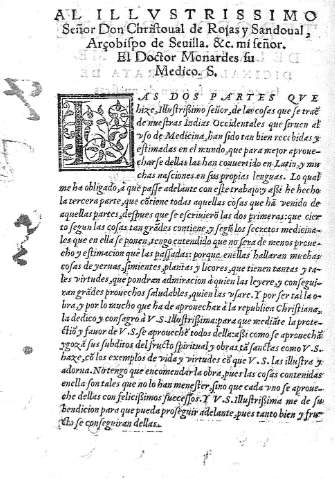 AL ILLVSTRISSIMO
Señor Don Christoual de Rojas y Sandoual,
Arçobispo de Seuilla. &c. mi señor.
El Doctor Monardes su
Medico. S.
LAS DOS PARTES QVE
hize, Illustrissimo señor, de las cosas que se traē
de nuestras Indias Occidentales que siruen al
vso de Medicina, han sido tan bien recebidas y
estimadas en el mundo, que para mejor aproue-
charse dellas las han conuertido en Latin, y mu
chas naciones en sus propias lenguas. Lo qual
me ha obligado, à que passe adelante con este trabajo: y assi he hecho
la tercera parte, que cōtiene todas aquellas cosas que hā venido de
aquellas partes, despues que se escriuierō las dos primeras: que cier
to segun las cosas tan grādes contiene, y segū los secretos medicina-
les que en ella se ponen, tengo entendido que no sera de menos proue-
cho y estimacion que las passadas: porque enellas hallaran muchas
cosas de yeruas, simientes, plantas y licores, que tienen tantas y ta-
les virtudes, que pondran admiracion à quien las leyere, y consegui-
ran grādes prouechos saludables, quien las vsare. Y por ser tal la o-
bra, y por lo mucho que ha de aprouechar à la republica Christiana,
la dedico y consagro à V.S. Illustrissima: para que mediāte la prote-
ctiō y fauor de V.S. se aprouechē todos della: assi como se aprouechā
y gozā sus subditos del fructo spiritual y obras tā sanctas como V.S.
haze, cō los exemplos de vida y virtudes cō que V.S. las illustra y
adorna. No tengo que encomendar la obra, pues las cosas contenidas
enella son tales que no lo han menester, sino que cada vno se aproue-
che dellas con felicissimos sucessos. Y V.S. Illustrissima me de su
bendicion para que pueda proseguir adelante, pues tanto bien y fru-
cto se conseguiran dellas.